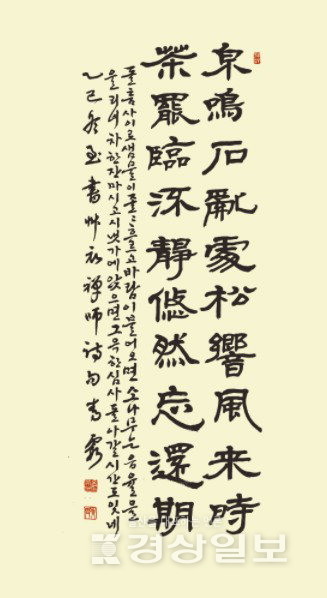 泉鳴石亂處松響風来時
茶罷臨流靜悠然忘還期
돌틈사이로샘물이졸졸흐르고바람이불어오면소나무는음율을
울리네차한잔마시고시냇가에앉으면그윽한심사돌아갈시간도잊네
乙巳冬至書艸衣禪師詩句
경상일보